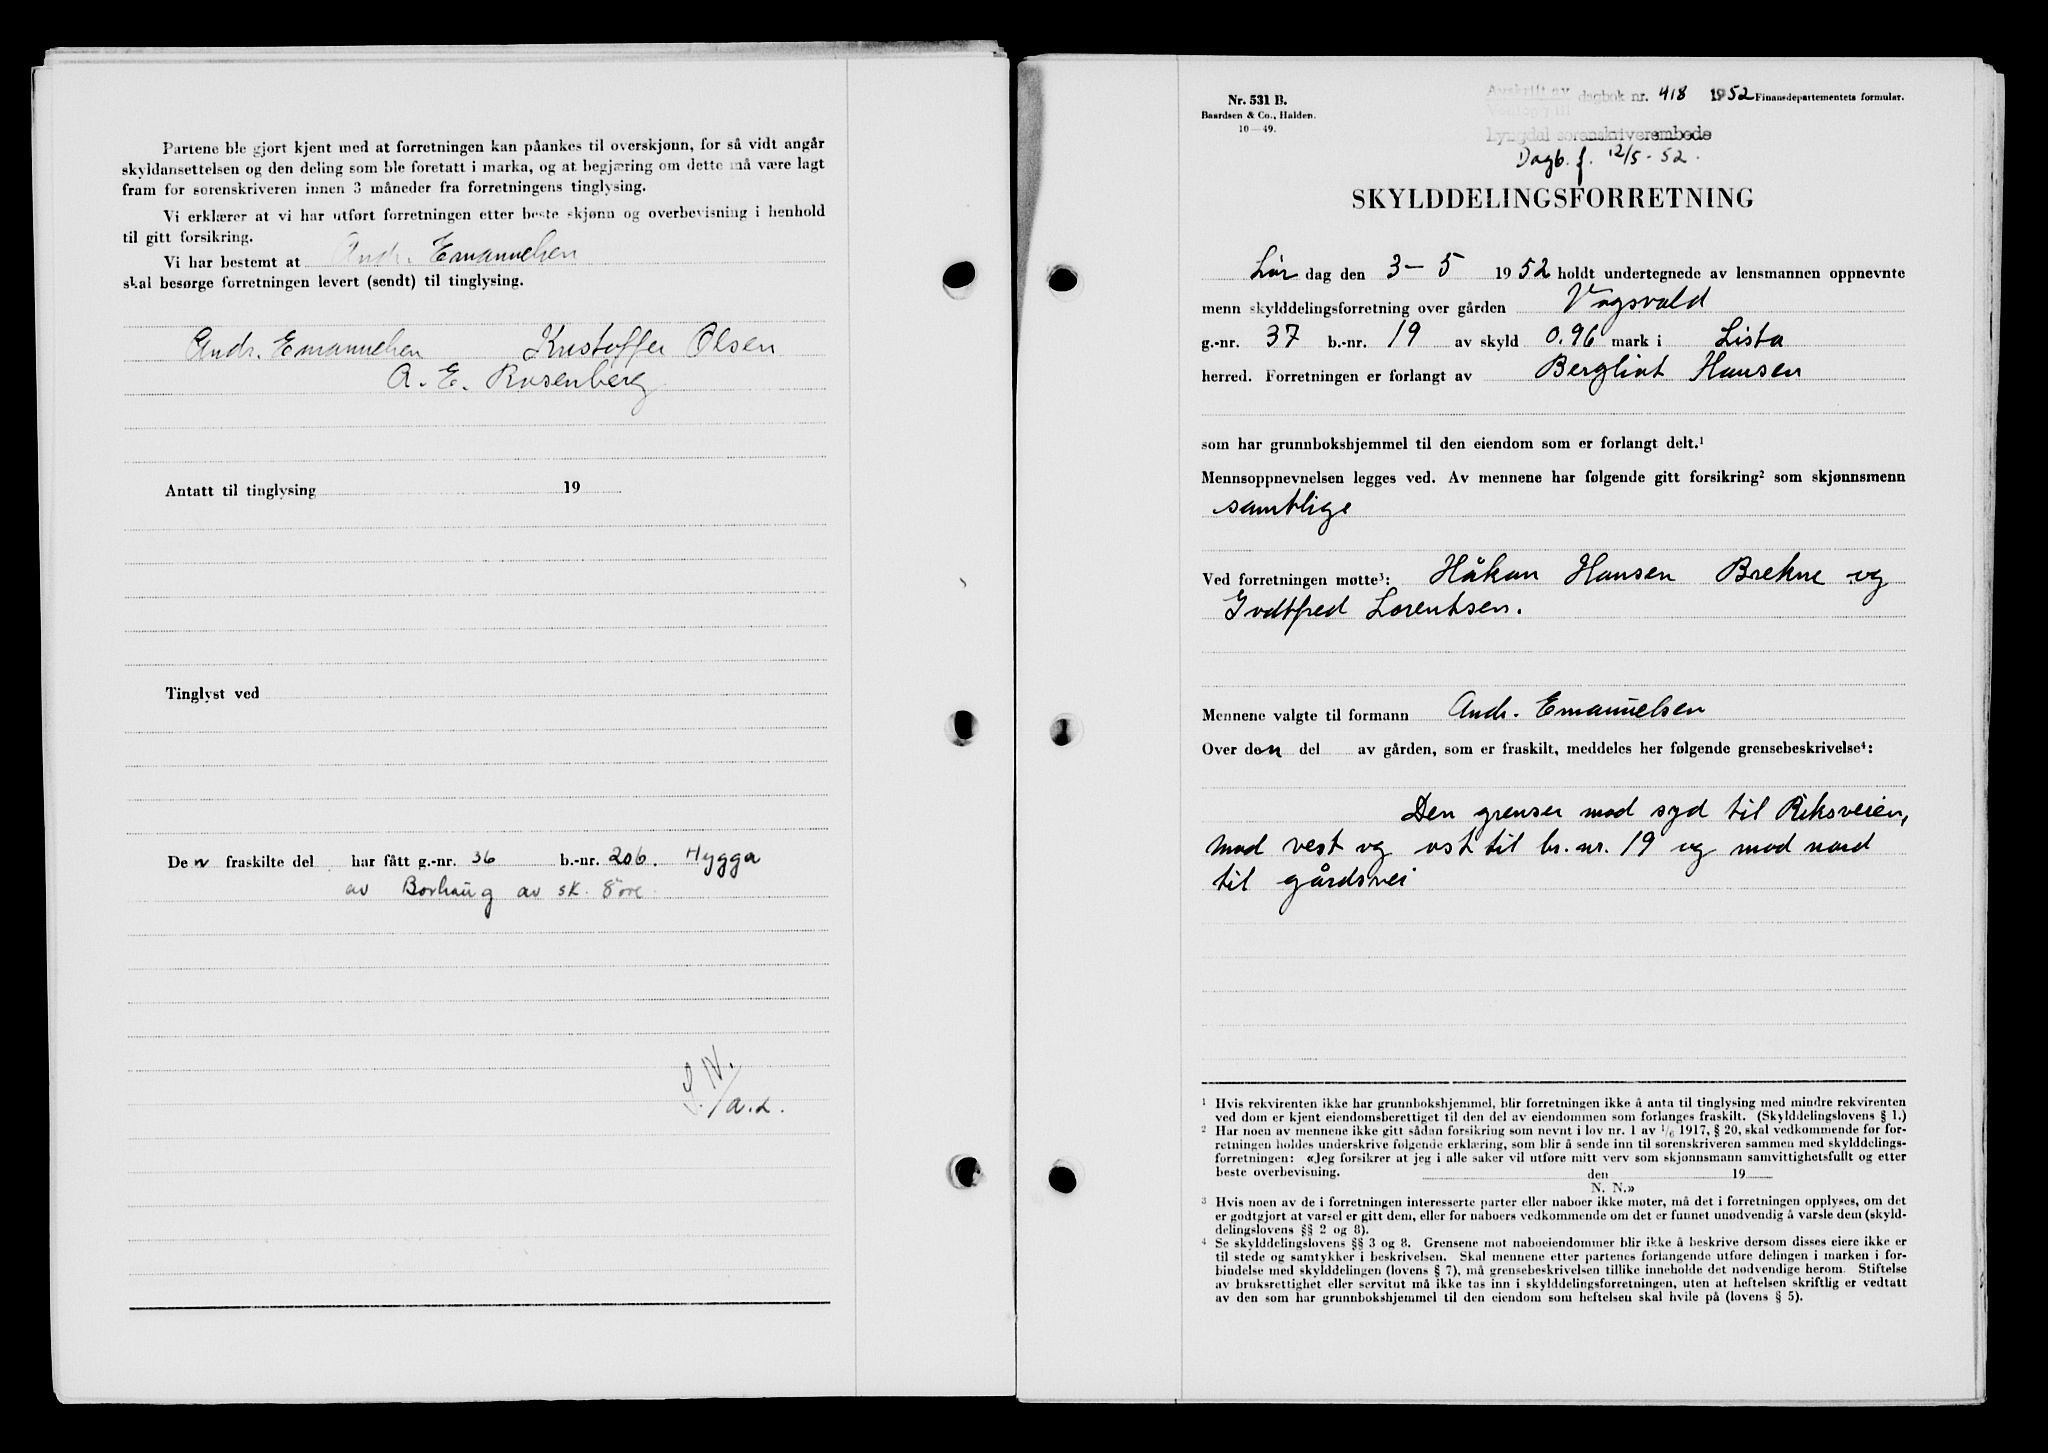 Partene ble gjort kjent med at forretningen kan påankes til overskjønn, for så vidt angår
skyldansettelsen og den deling som ble foretatt i marka, og at begjæring om dette må være lagt
fram for sorenskriveren innen 3 måneder fra forretningens tinglysing.
Vi erklærer at vi har utført forretningen etter beste skjønn og overbevisning i henhold
til gitt forsikring.
Vi har bestemt at Andr. Emanuelsen
skal besørge forretningen levert (sendt) til tinglysing.
Andr. Emanuelsen Kristoffer Olsen
A. E. Rosenberg
Antatt til tinglysing 19
Tinglyst ved
Den fraskilte del har fått g.-nr. 36 b.-nr. 206. Hygga
av Borhaug av sk. 8 øre
Nr. 531 B.
Baardsen & Co., Halden.
10—49.
Avskrift av dagbok nr. 418 1952 Finansdepartementets formular.
Lyngdal sorenskriverembede
Dagb. f. 12/5-52.
SKYLDDELINGSFORRETNING
Lør dag den 3-5 1952 holdt undertegnede av lensmannen oppnevnte
menn skylddelingsforretning over gården Vågsvold
g.-nr. 37 b.-nr. 19 av skyld 0.96 mark i Lista
herred. Forretningen er forlangt av Bergliot Hansen
som har grunnbokshjemmel til den eiendom som er forlangt delt.¹
Mennsoppnevnelsen legges ved. Av mennene har følgende gitt forsikring² som skjønnsmenn
samtlige
Ved forretningen møtte³: Håkon Hansen Brekne og
Godtfred Lorentsen.
Mennene valgte til formann Andr. Emanuelsen
Over den del av gården, som er fraskilt, meddeles her følgende grensebeskrivelse⁴:
Den grenser mod syd til Riksveien,
mod vest og ost til br. nr. 19 og mod nord
til gårdsvei
¹ Hvis rekvirenten ikke har grunnbokshjemmel, blir forretningen ikke å anta til tinglysing med mindre rekvirenten
ved dom er kjent eiendomsberettiget til den del av eiendommen som forlanges fraskilt. (Skylddelingslovens § 1.)
² Har noen av mennene ikke gitt sådan forsikring som nevnt i lov nr. 1 av 1/6 1917, § 20, skal vedkommende før for-
retningen holdes underskrive følgende erklæring, som blir å sende inn til sorenskriveren sammen med skylddelings-
forretningen: «Jeg forsikrer at jeg i alle saker vil utføre mitt verv som skjønnsmann samvittighetsfullt og etter
beste overbevisning. den 19
N. N.»
³ Hvis noen av de i forretningen interesserte parter eller naboer ikke møter, må det i forretningen opplyses, om det
er godtgjort at varsel er gitt dem, eller for naboers vedkommende om det er funnet unødvendig å varsle dem (skyld-
delingslovens §§ 2 og 8).
⁴ Se skylddelingslovens §§ 3 og 8. Grensene mot naboeiendommer blir ikke å beskrive dersom disses eiere ikke er
til stede og samtykker i beskrivelsen. Skal mennene etter partenes forlangende utføre delingen i marken i for-
bindelse med skylddelingen (lovens § 7), må grensebeskrivelsen tillike inneholde det nødvendige herom. Stiftelse
av bruksrettighet eller servitut må ikke tas inn i skylddelingsforretningen, uten at heftelsen skriftlig er vedtatt
av den som har grunnbokshjemmel til den eiendom som heftelsen skal hvile på (lovens § 5).